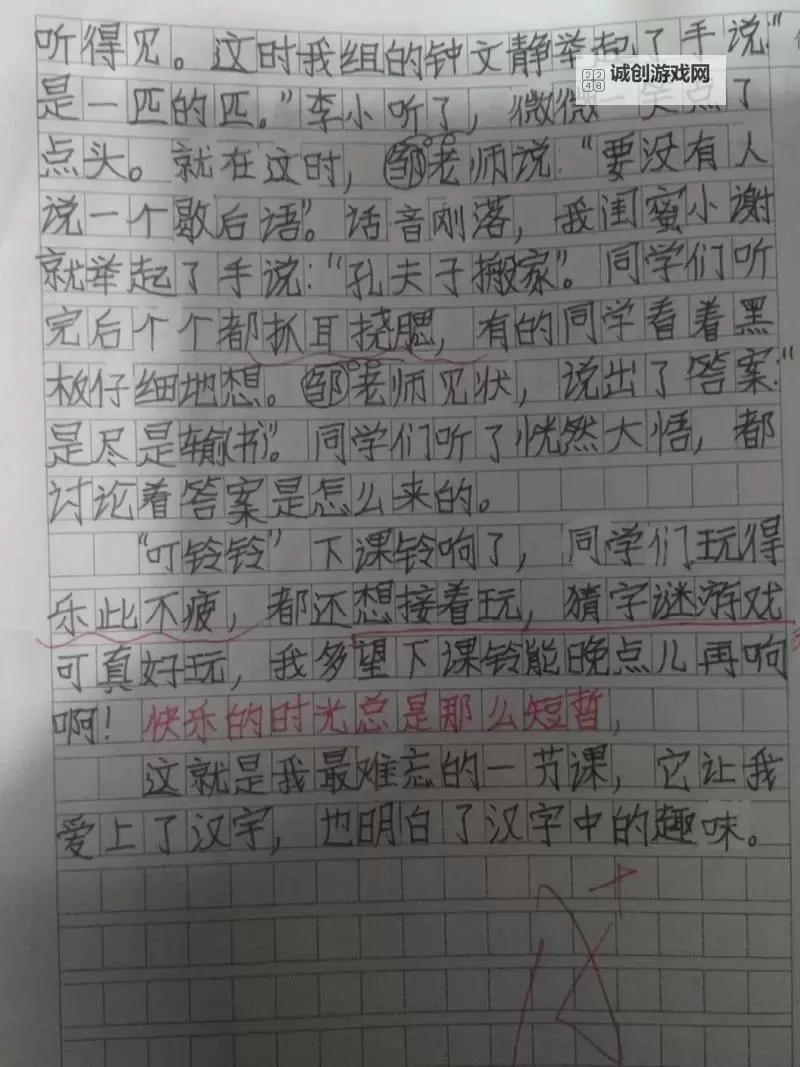 听得见。这时我组的钟文静举起了手说:“
诚创游戏网
2248
是一匹的匹。”李小听了,微微一笑点了
点头。就在这时,邹老师说:“要没有人
说一个歇后语”。话音刚落,我闺蜜小谢
就举起了手说:“孔夫子搬家”。同学们听
完后个个都抓耳挠腮,有的同学看着黑
板仔细地想。邹老师见状,说出了答案:“
是尽是输(书)”。同学们听了恍然大悟,都
讨论着答案是怎么来的。
“叮铃铃”下课铃响了,同学们玩得
乐此不疲,都还想接着玩,猜字谜游戏
可真好玩,我多望下课铃能晚点儿再响
啊!快乐的时光总是那么短暂,
这就是我最难忘的一节课,它让我
爱上了汉字,也明白了汉字中的趣味。